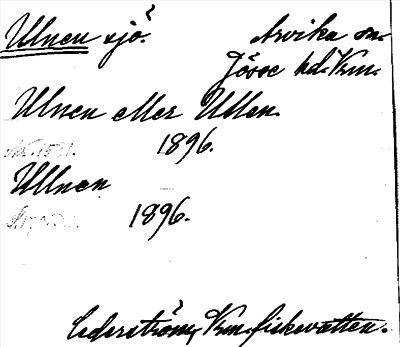 Ulnen sjö. Arvika sn.
Jösse hd. Vrm.
Ulnen eller Ullen.
1896.
Ullnen
1896.
Cederström, Vrm. fiskevatten.